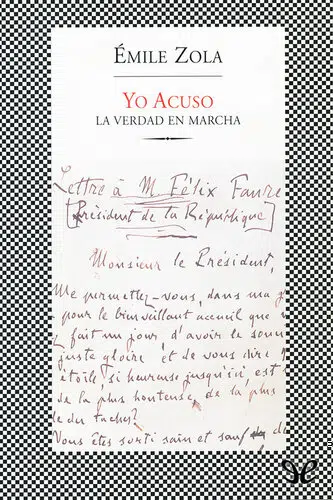 ÉMILE ZOLA
YO ACUSO
LA VERDAD EN MARCHA
Lettre à M. Félix Faure
[Président de la République]
Monsieur le Président,
Me permettez-vous, dans ma g
pour le bienveillant accueil que
fait un jour, d'avoir le souci
juste gloire et de vous dire
étoile, si heureuse jusqu'ici, est
de la plus honteuse, de la plus
le des taches?
Vous êtes sorti sain et sauf de